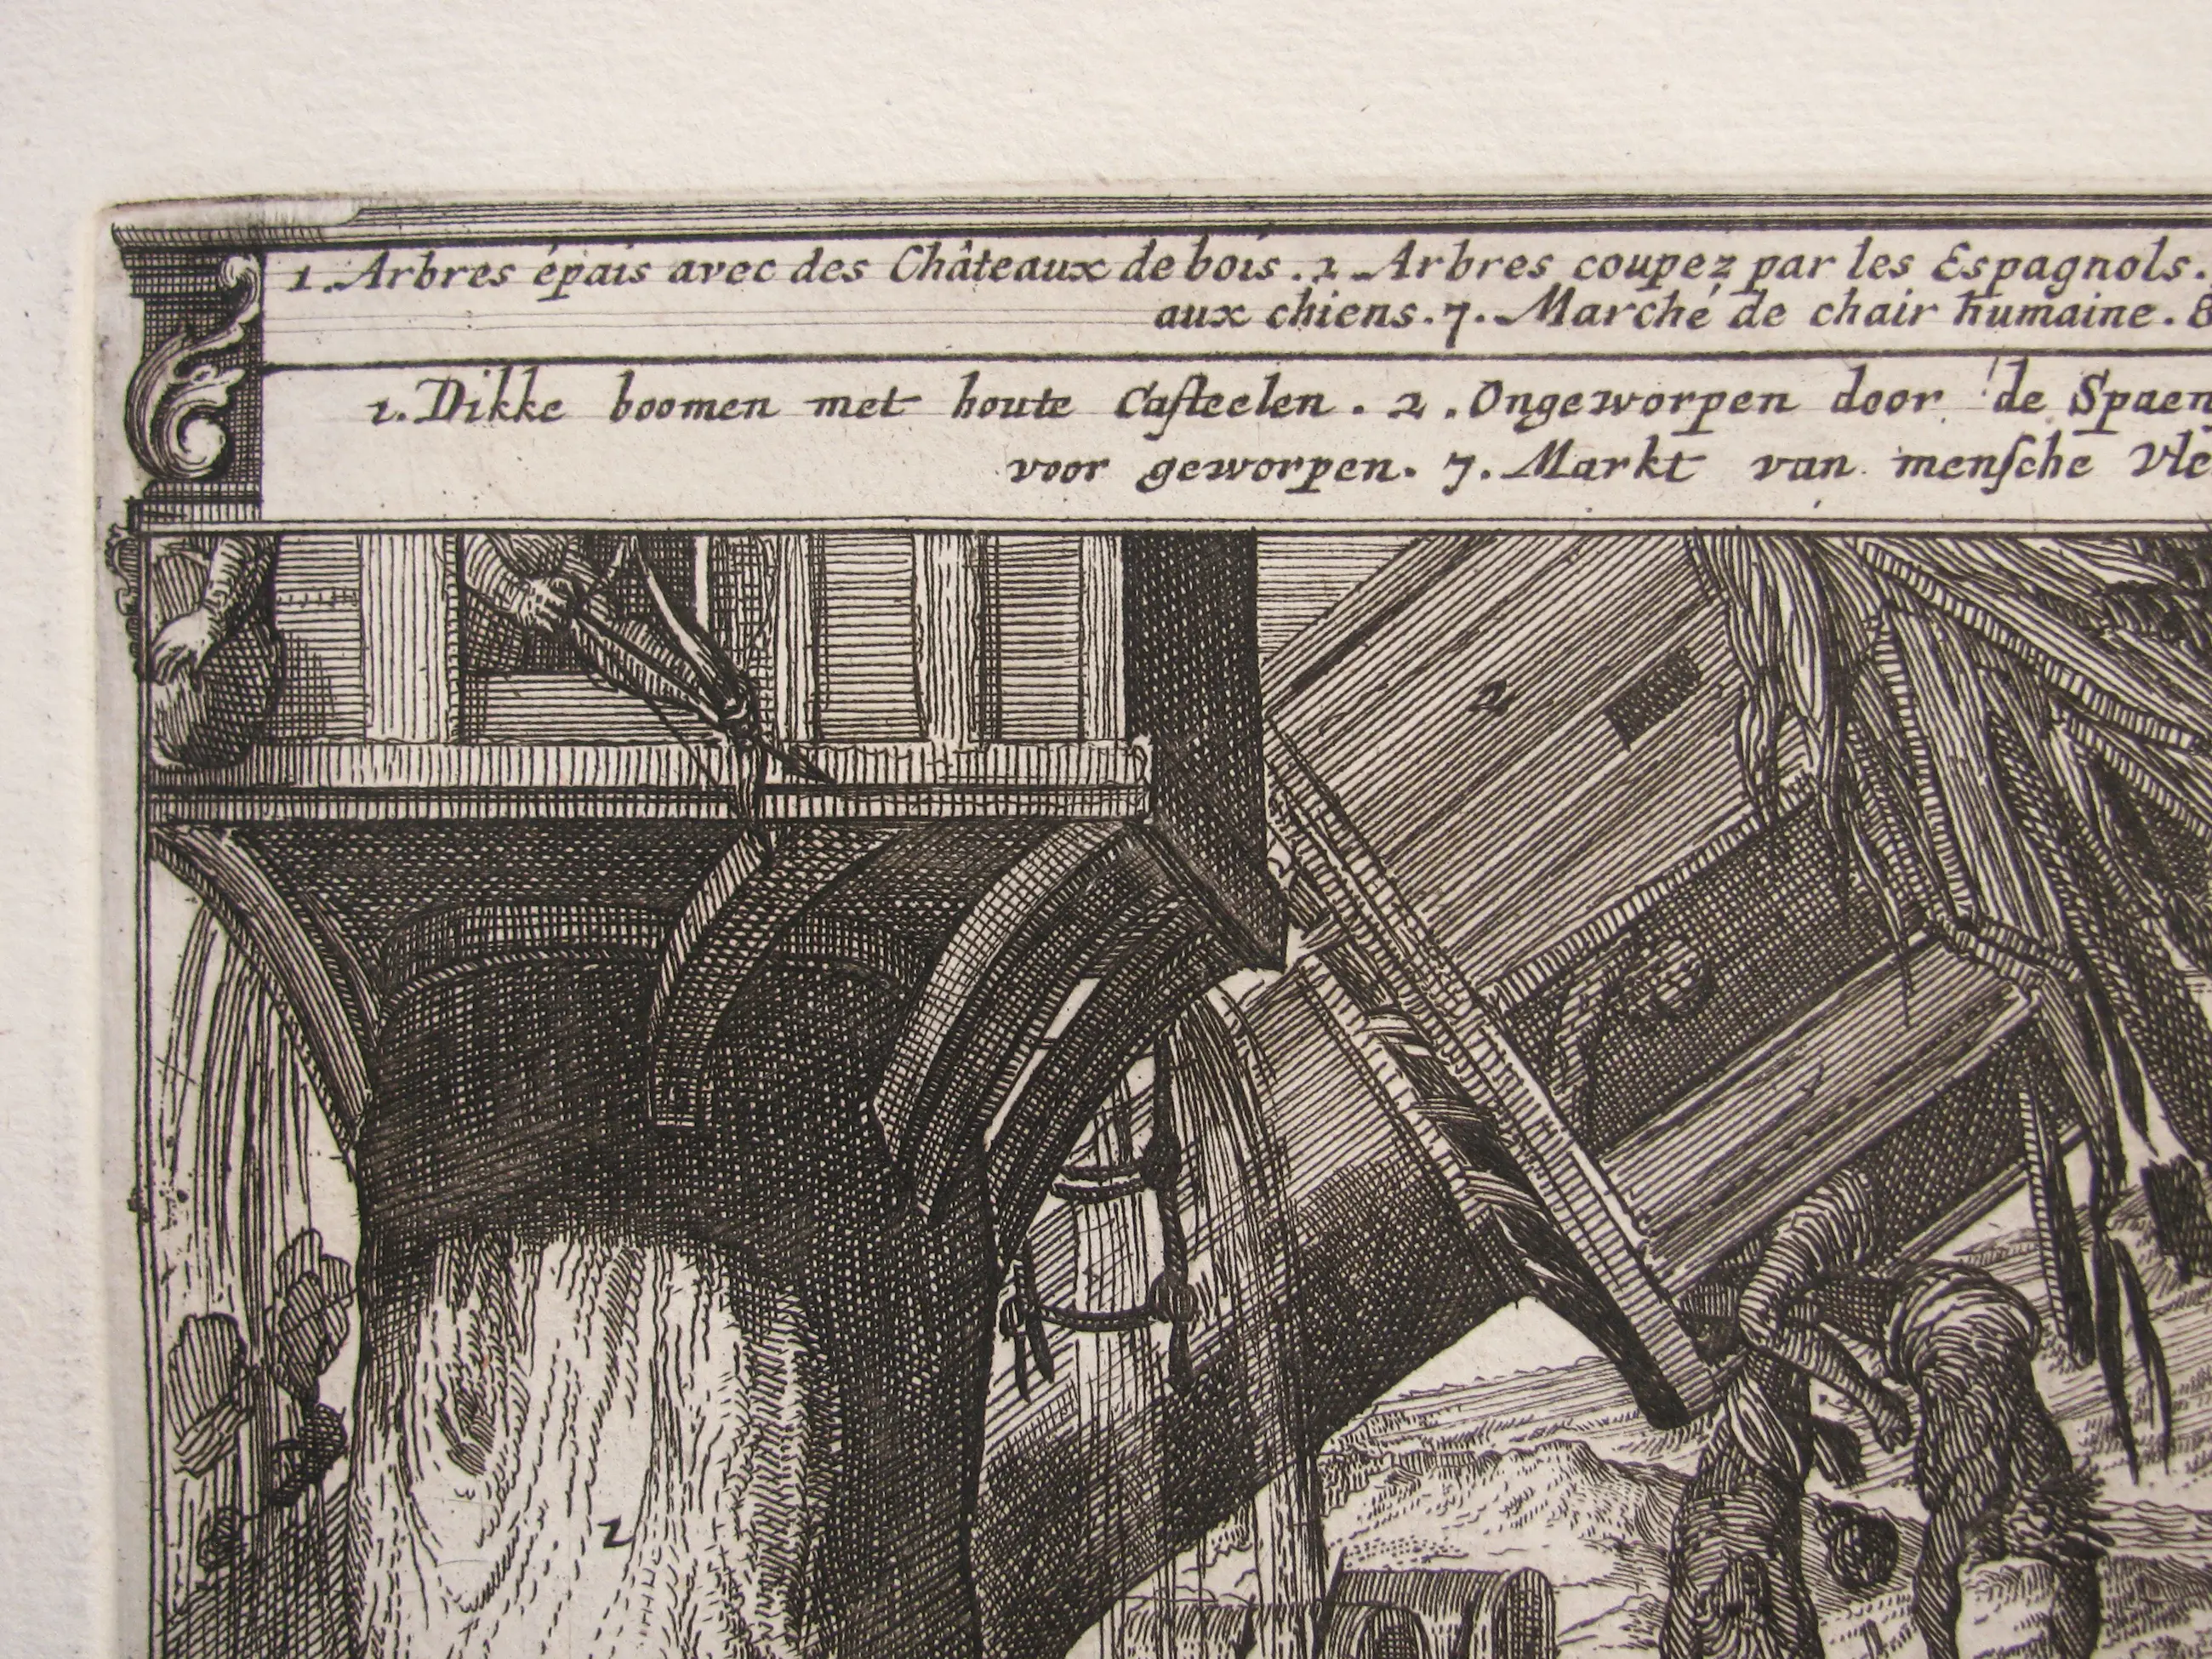 1. Arbres épais avec des Châteaux de bois. 2 Arbres coupez par les Espagnols.
aux chiens. 7. Marché de chair humaine. 8
1. Dikke boomen met houte Casteelen. 2. Ongeworpen door de Spaen
voor geworpen. 7. Markt van mensche Vle
2
2